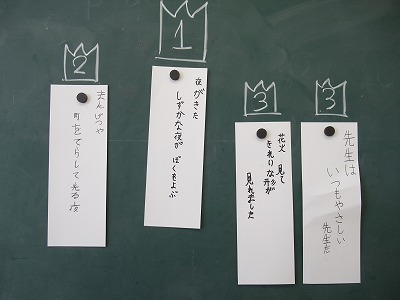 3
先生は
いつもやさしい
先生だ
3
花火 見て
きれいな形が
見れました
1
夜がきた
しずかな夜が ぼくをよぶ
2
まんげつや
町をてらして 光る夜